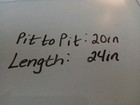 Pit to Pit: 20in
Length: 24in